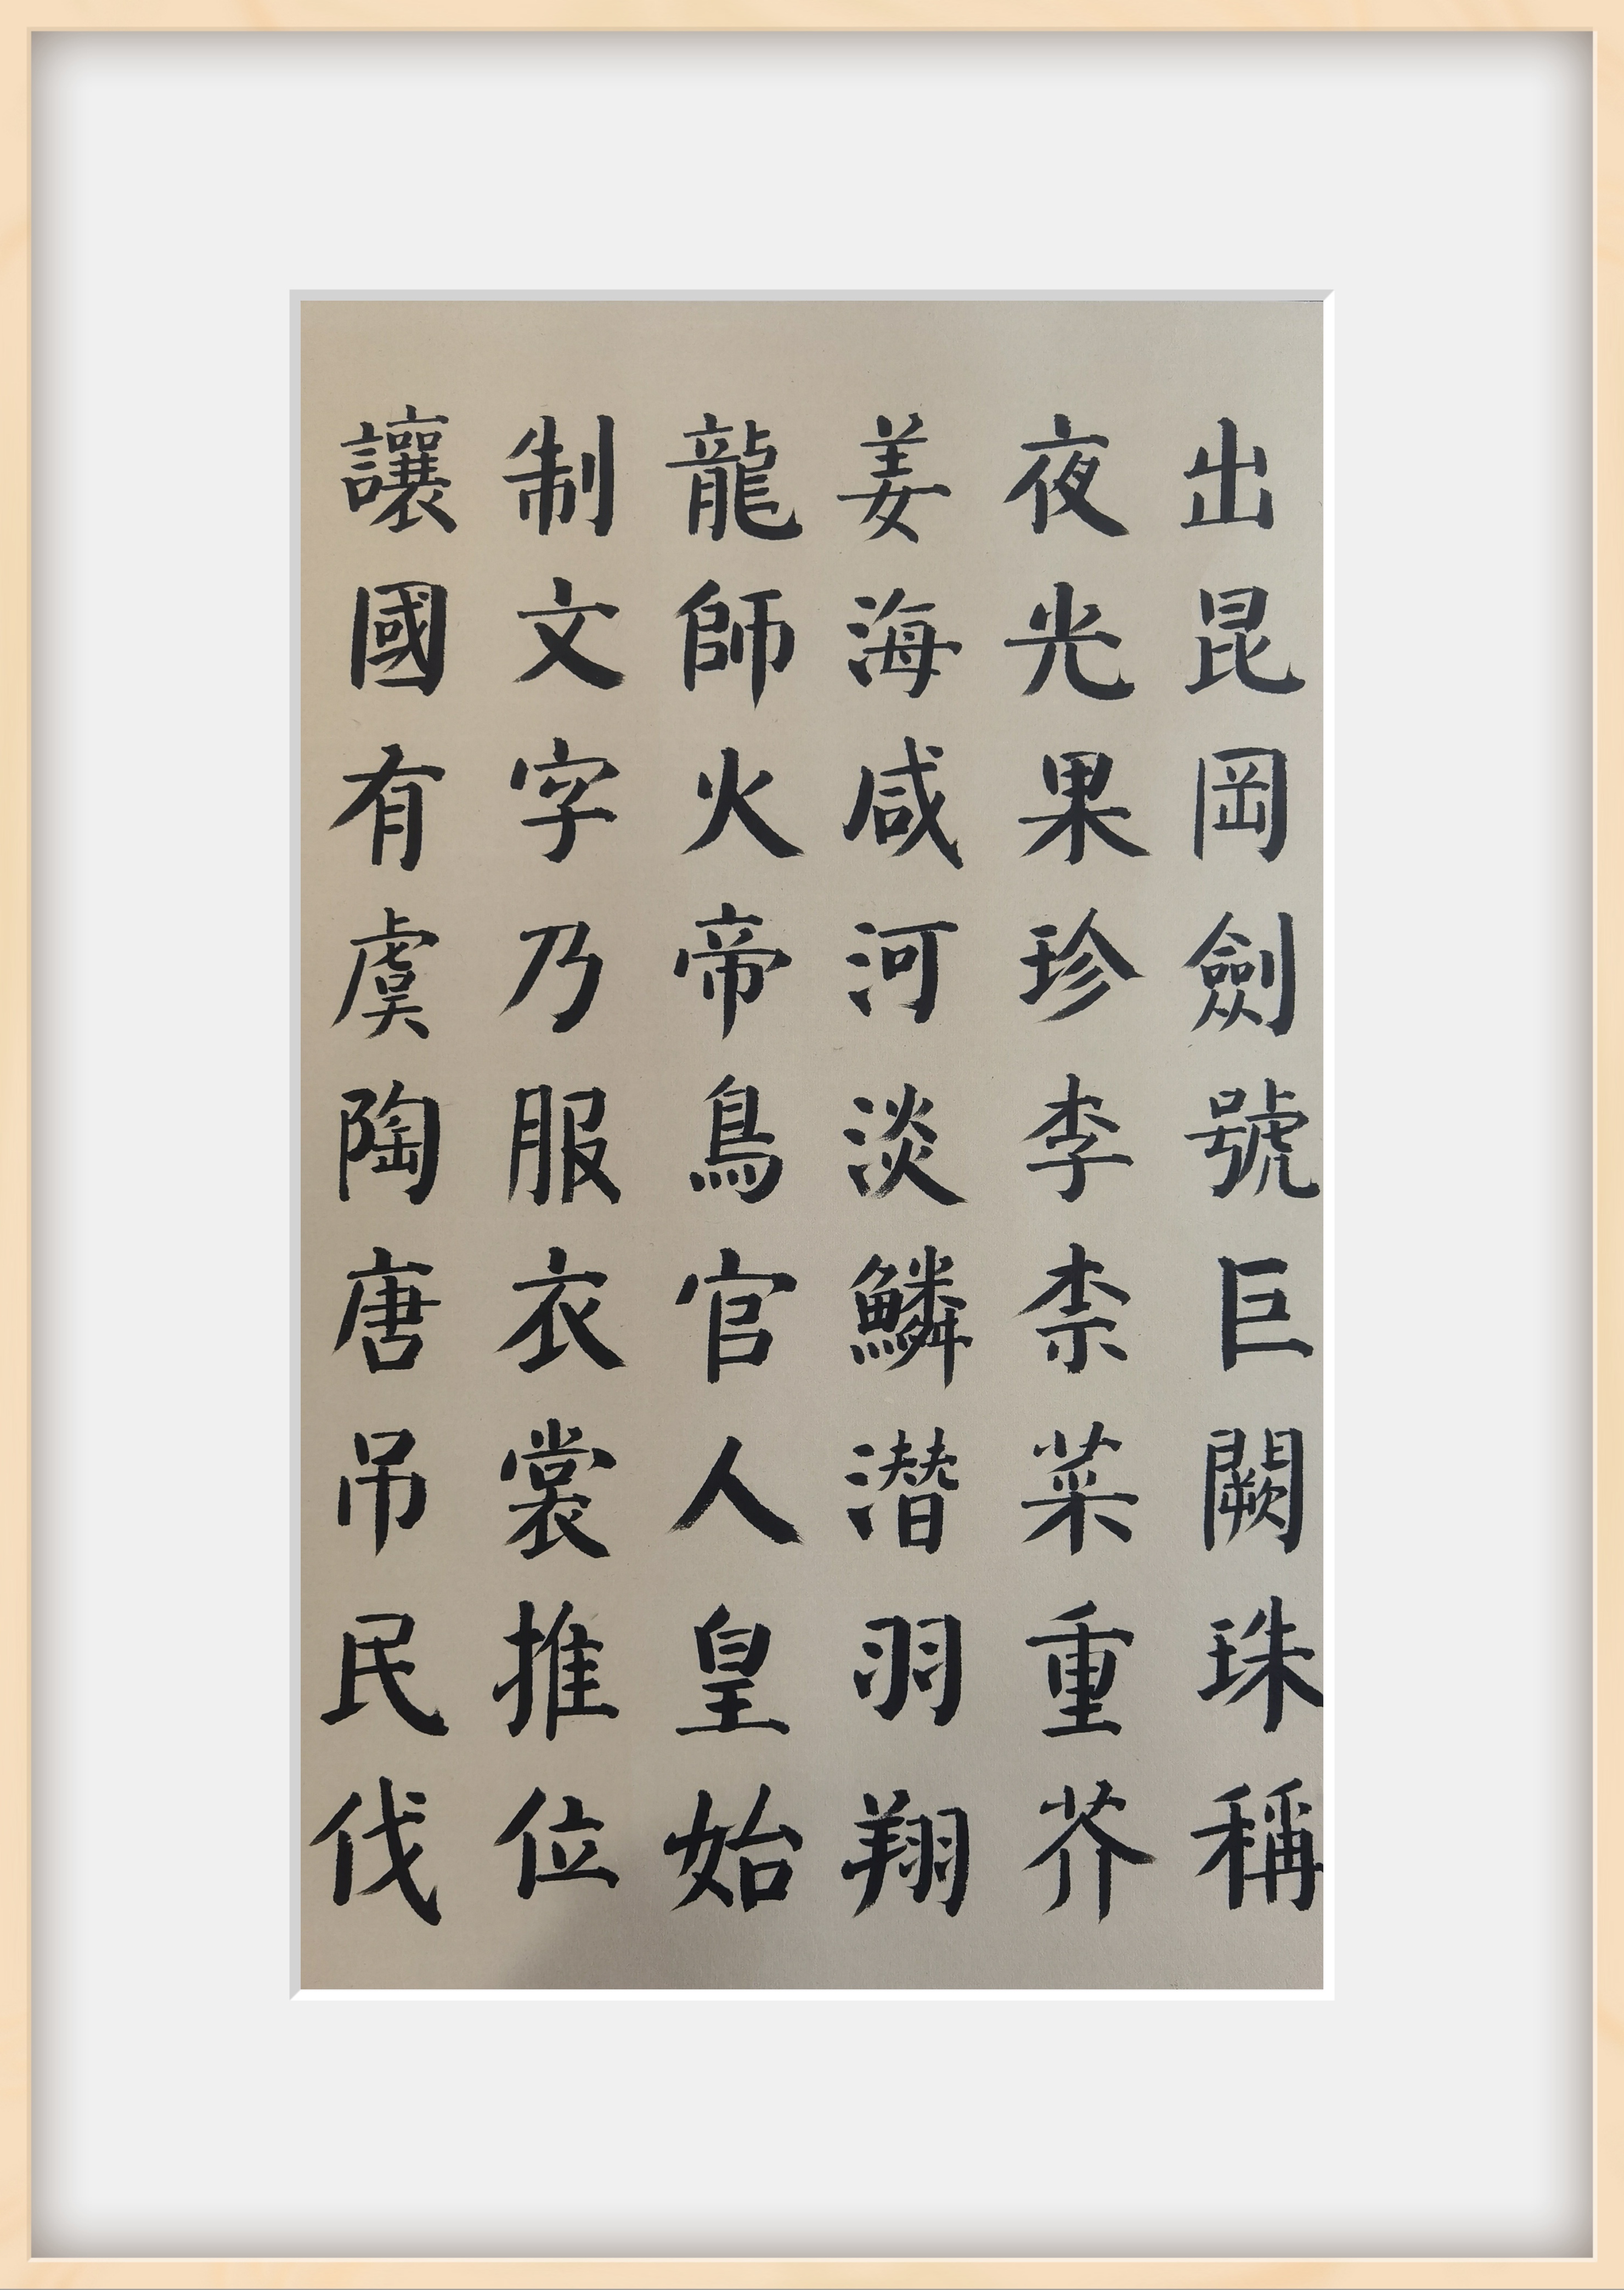 出昆岡劍號巨闕珠稱
夜光果珍李柰菜重芥
姜海咸河淡鱗潜羽翔
龍師火帝鳥官人皇始
制文字乃服衣裳推位
讓國有虞陶唐吊民伐